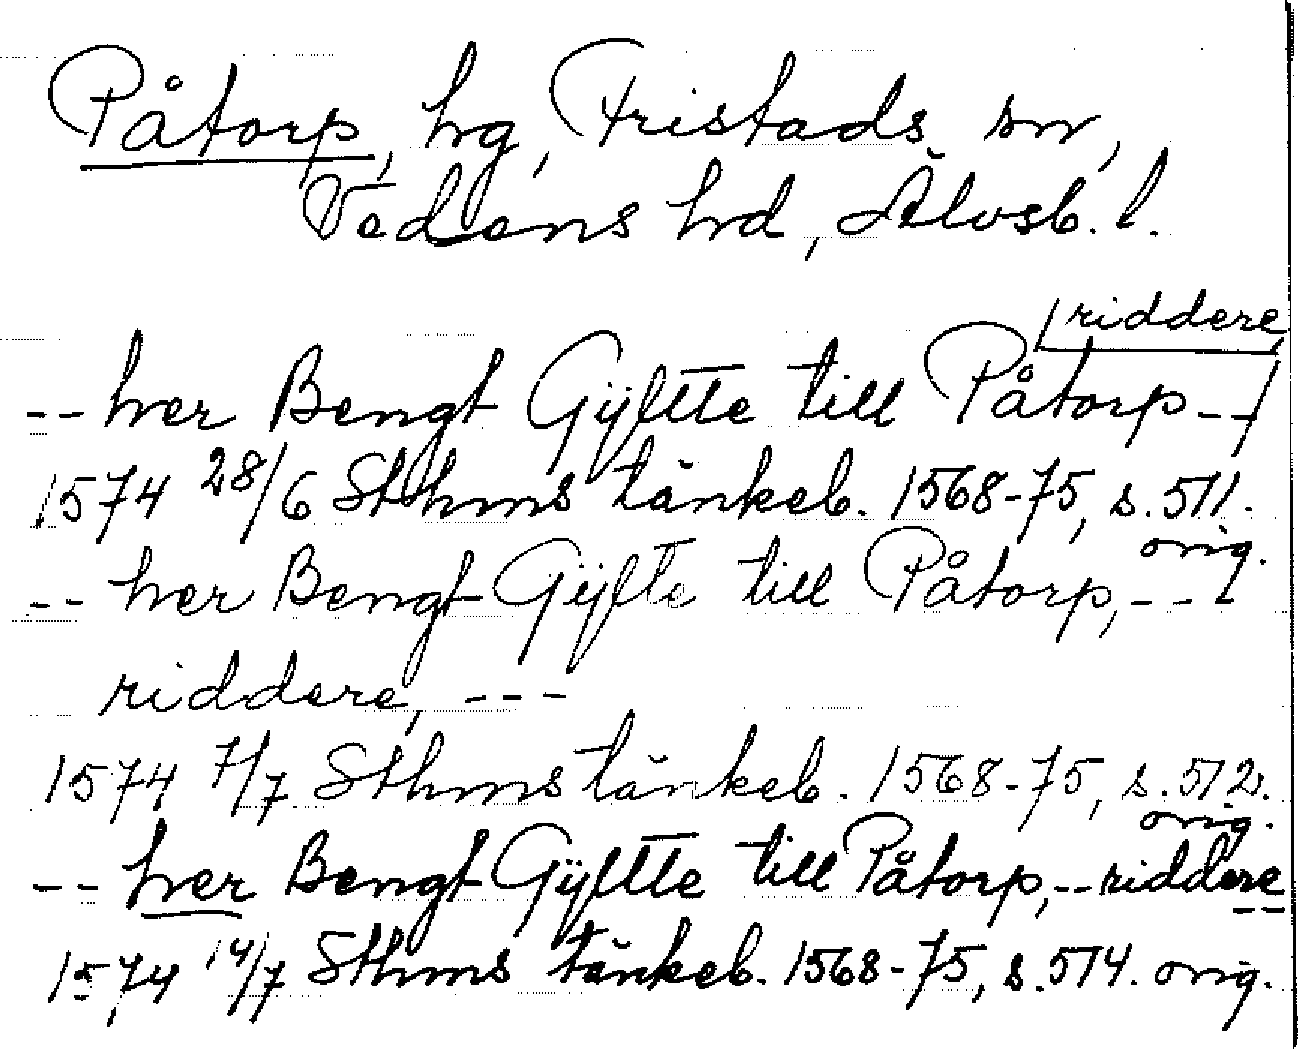 Påtorp, hg, Fristads sn,
Vedens hd, Älvsb. l.
riddere
-- her Bengt Gÿltte till Påtorp --
1574 28/6 Sthms tänkeb. 1568-75, s. 511.
orig.
-- her Bengt Gÿlte till Påtorp, ---
riddere, ---
1574 7/7 Sthms tänkeb. 1568-75, s. 512.
orig.
-- her Bengt Gÿltte till Påtorp, -- riddere
--
1574 14/7 Sthms tänkeb. 1568-75, s. 514. orig.